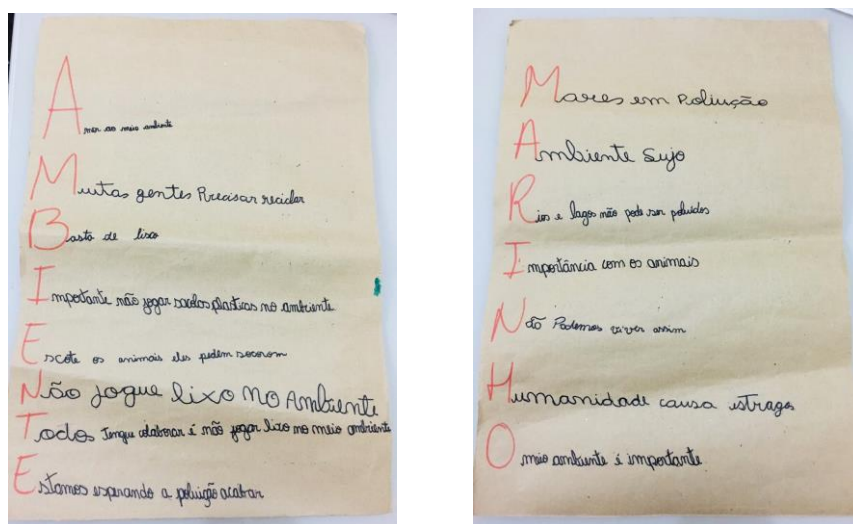 Amor ao meio ambiente
Muitas gentes Precisar reciclar
Basta de lixo
Importante não jogar sacolas plasticas no ambiente
Escote os animais eles pedem socorom
Não jogue lixo no Ambiente
Todos Tenque colaborar i não jogar lixo no meio ambiente
Estamos esperando a poluição acabar
Mares em Poliução
Ambiente Sujo
Rios e lagos não pode ser poluidos
Importância com os animais
Não Podemos viver assim
Humanidade causa estragos
O meio ambiente i importante